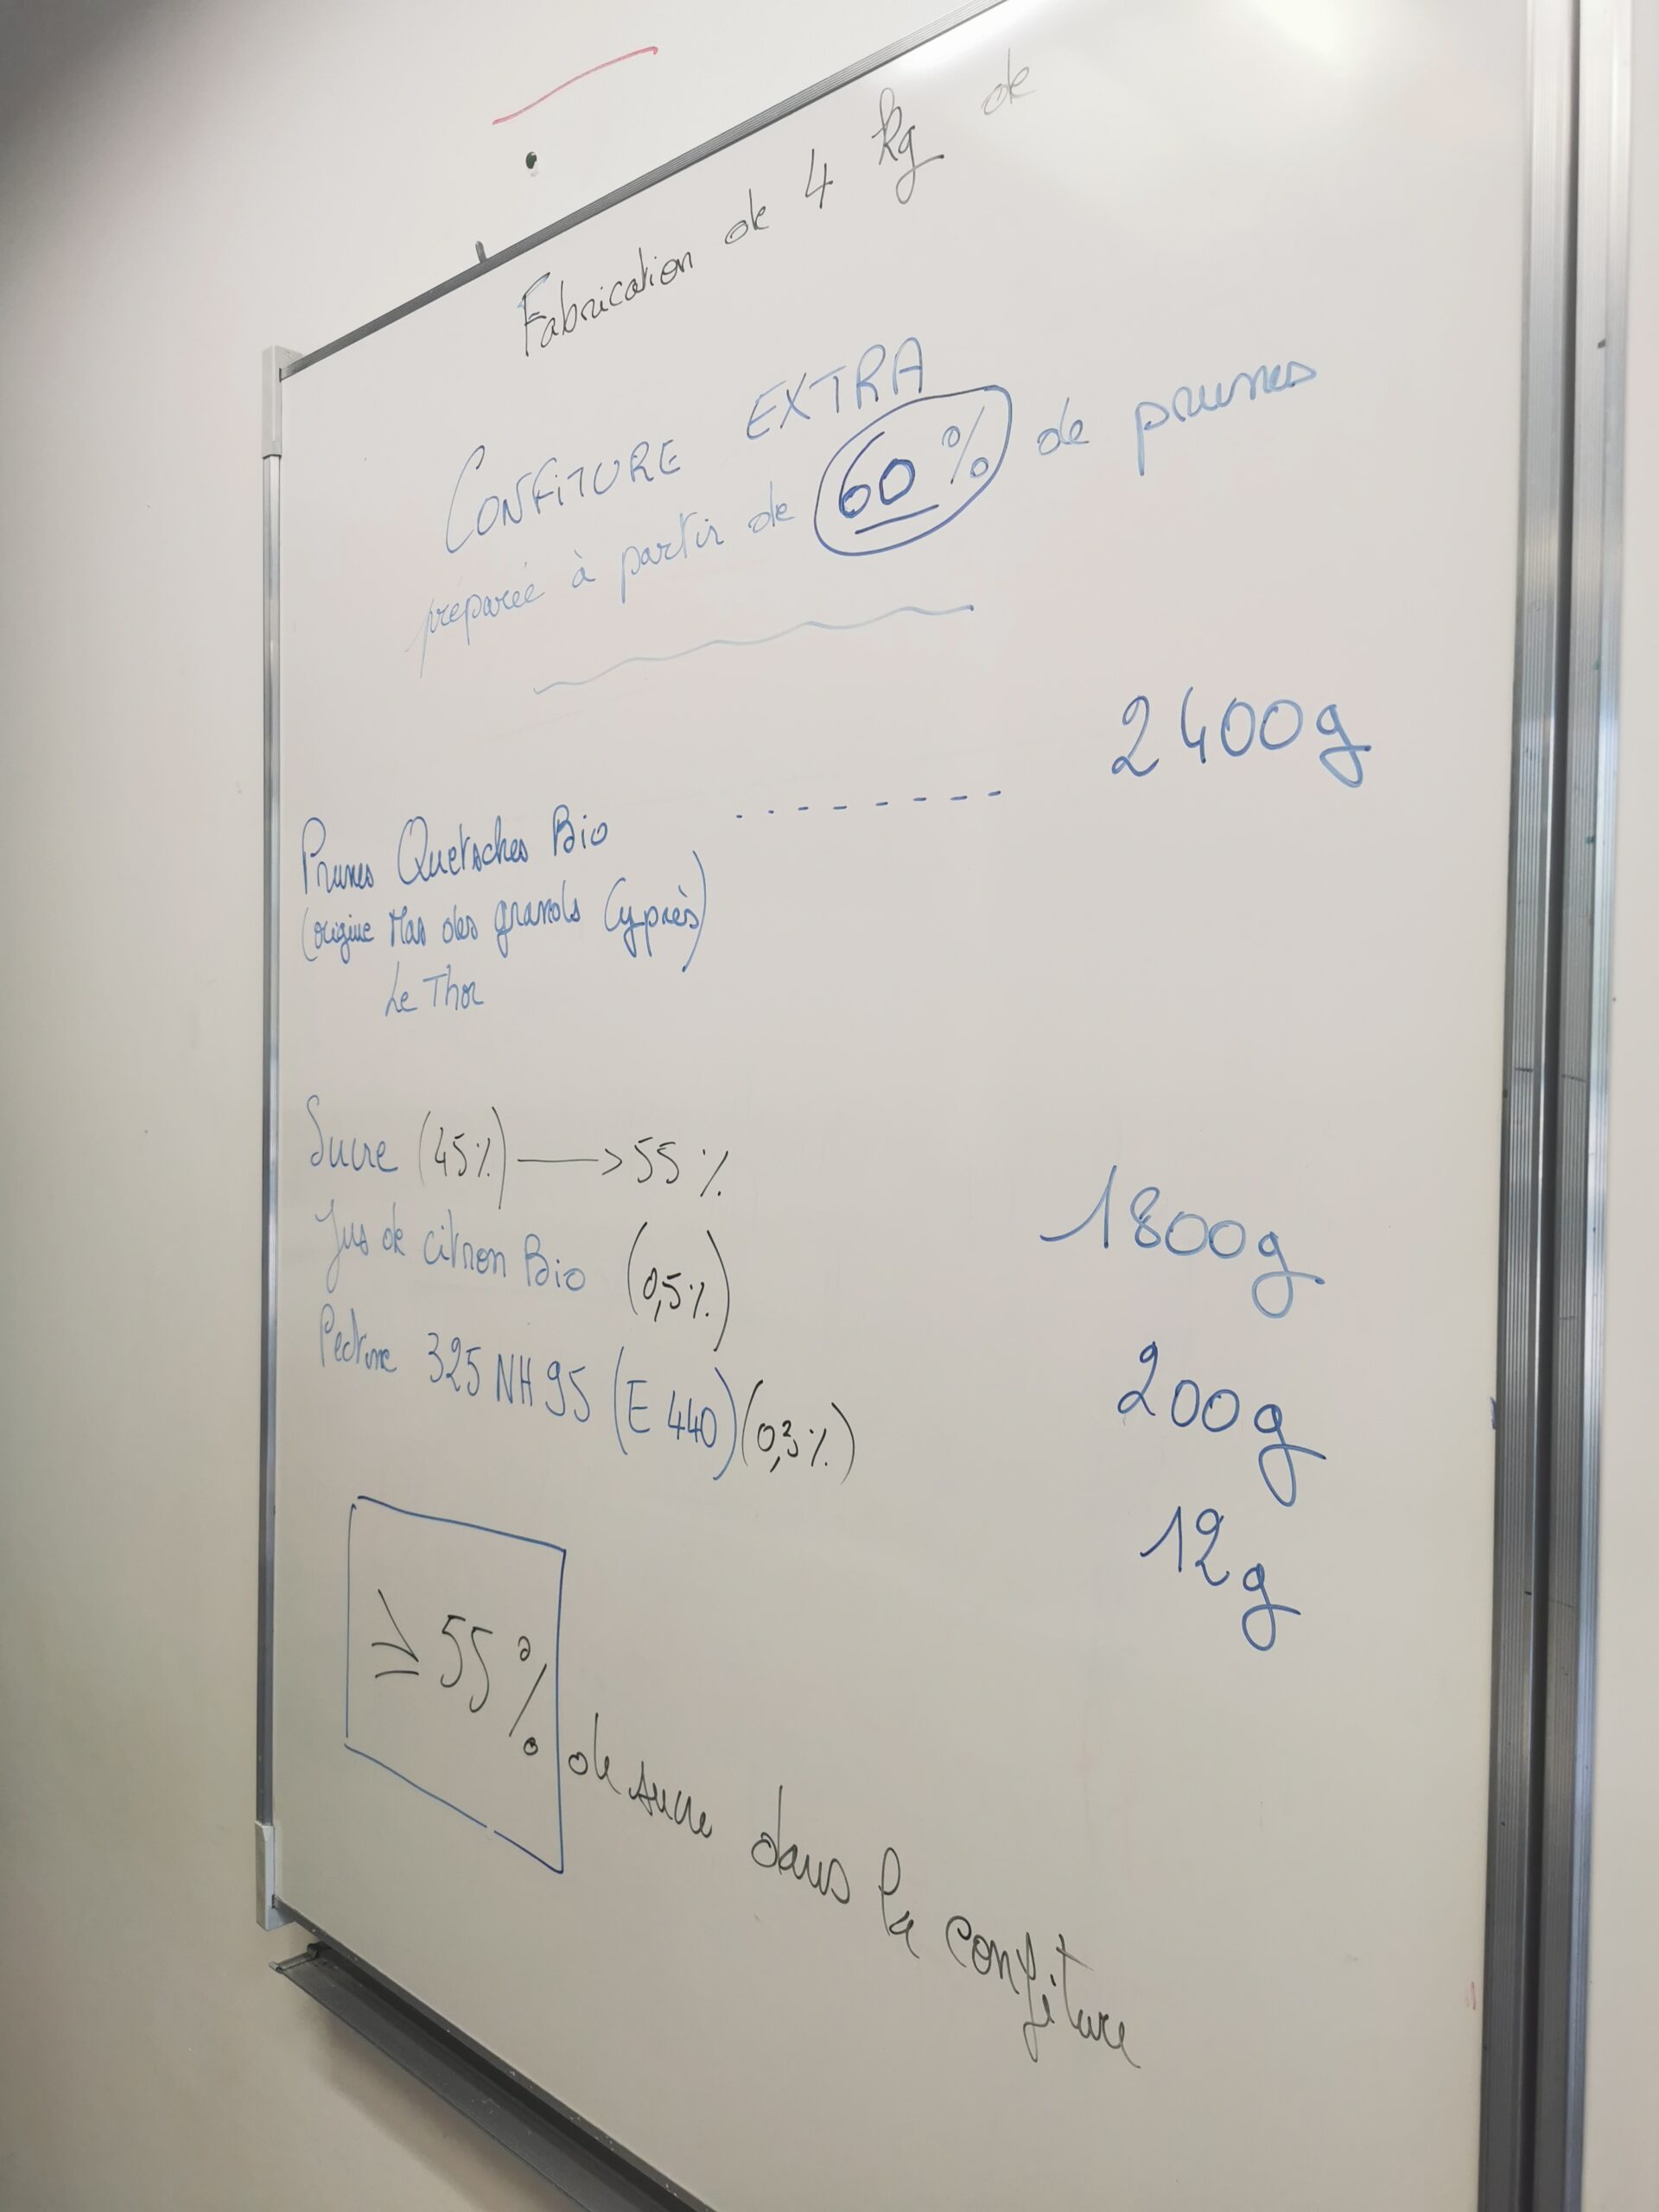 Fabrication de 4 kg de
CONFITURE EXTRA
préparée à partir de 60 % de prunes
Prunes Quetsches Bio - - - - - - - - 2400g
(origine Mas des grands Cyprès)
Le Thor
Sucre (45%) —> 55 % 1800g
Jus de citron Bio (0,5%) 200g
Pectine 325 NH 95 (E 440) (0,3%) 12g
≥ 55 % de sucre dans la confiture